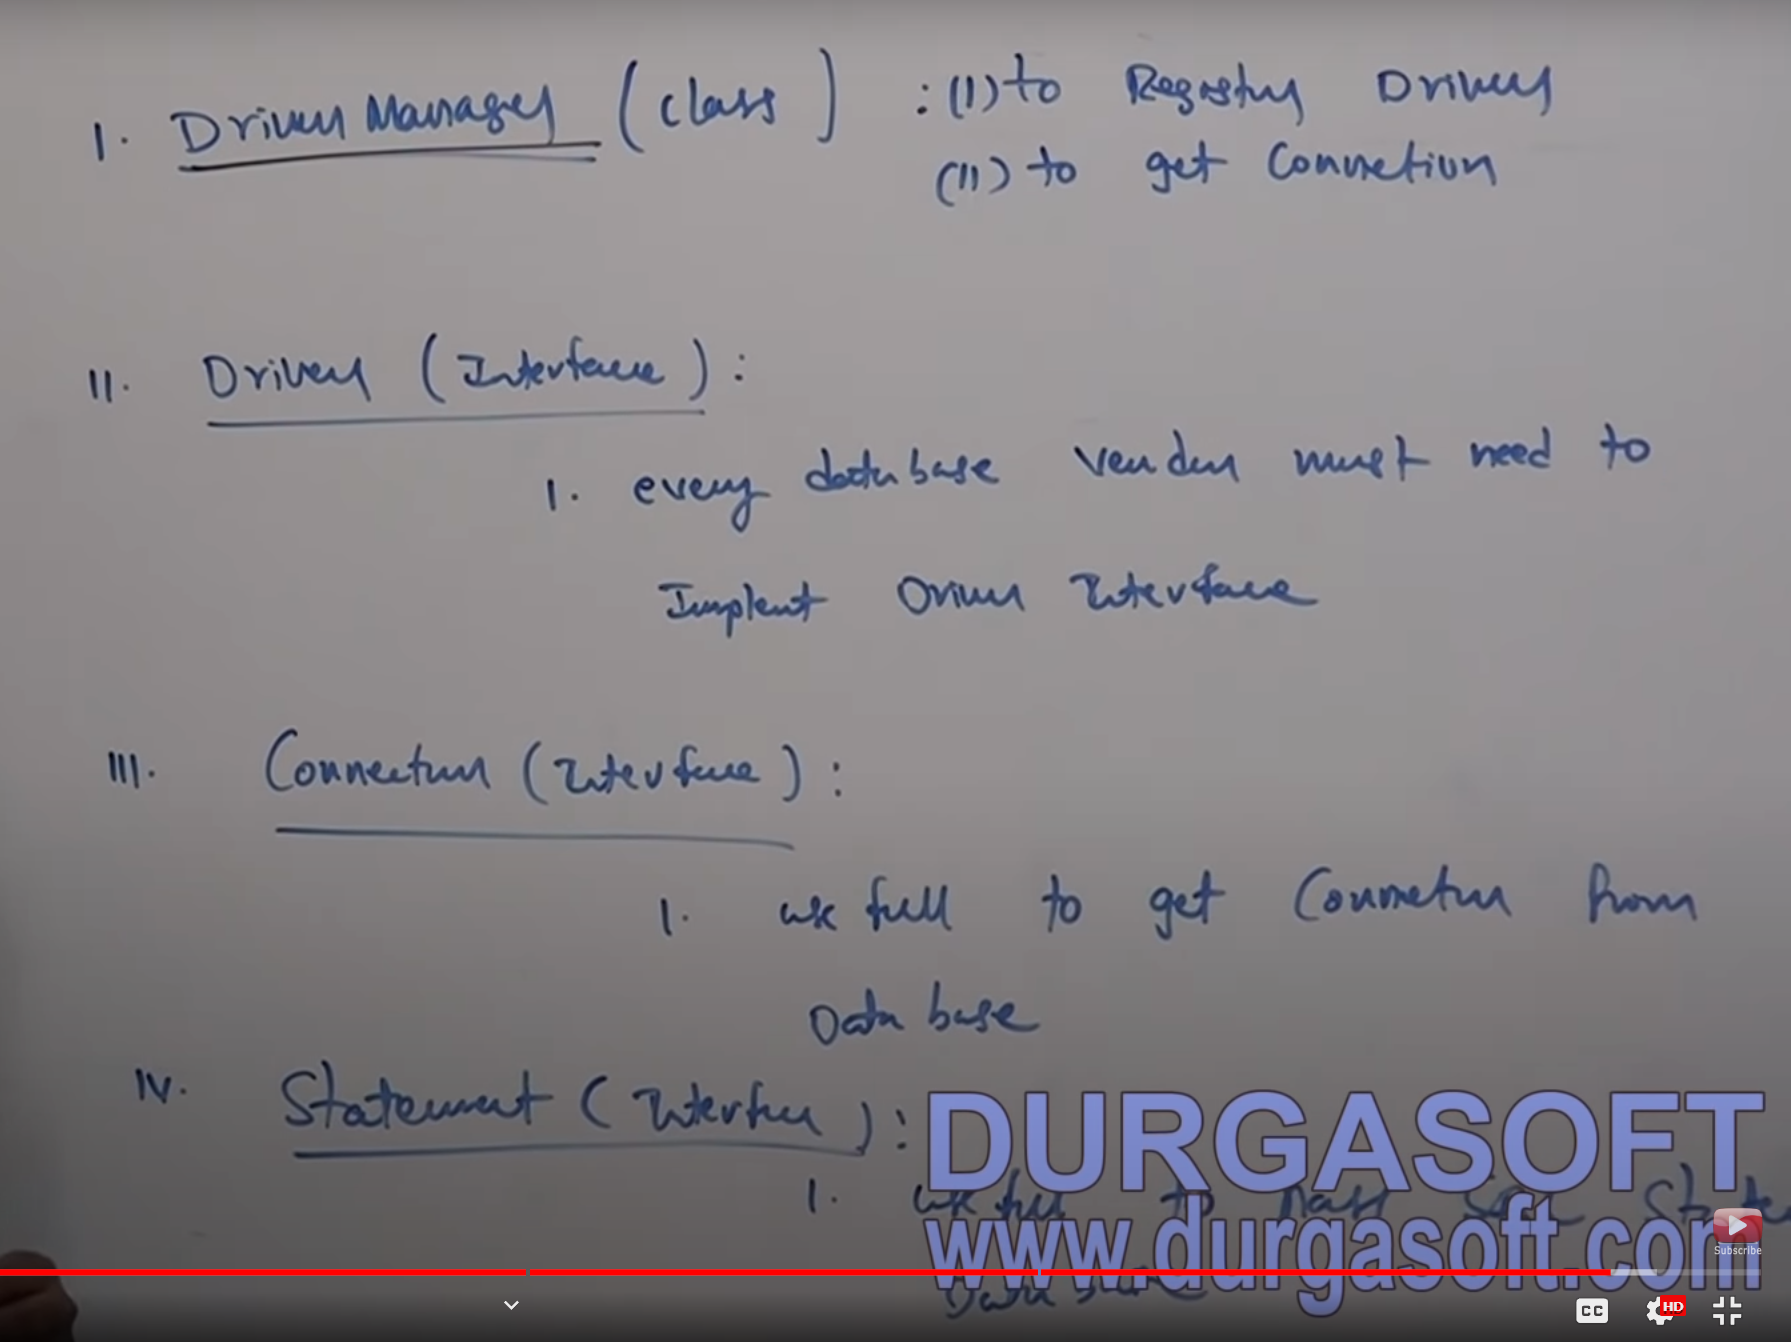 I. Driver Manager (class) : (I) to Registry Driver
(II) to get Connection
II. Driver (Interface) :
1. every database vendor must need to
Implent Driver Interface
III. Connection (Interface) :
1. usefull to get Connection from
Data base
IV. Statement (Interface) :
1. usefull to pass SQL State
Data base
DURGASOFT
www.durgasoft.com
Subscribe
CC
HD